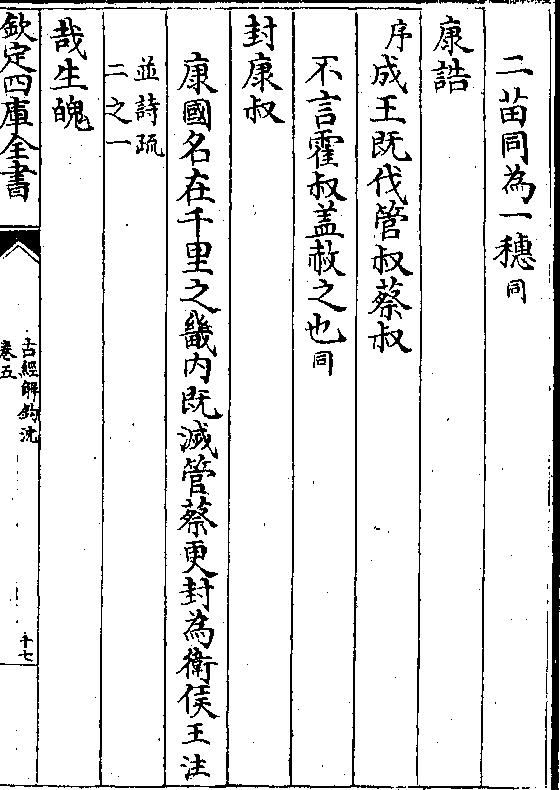 二苗同為一穗同
康誥
序成王既伐管叔蔡叔
不言霍叔盖赦之也同
封康叔
康國名在千里之畿内既滅管蔡更封為衛侯王注
並詩疏
二之一
哉生魄
欽定四庫全書
古經解鈎沈
卷五
十七